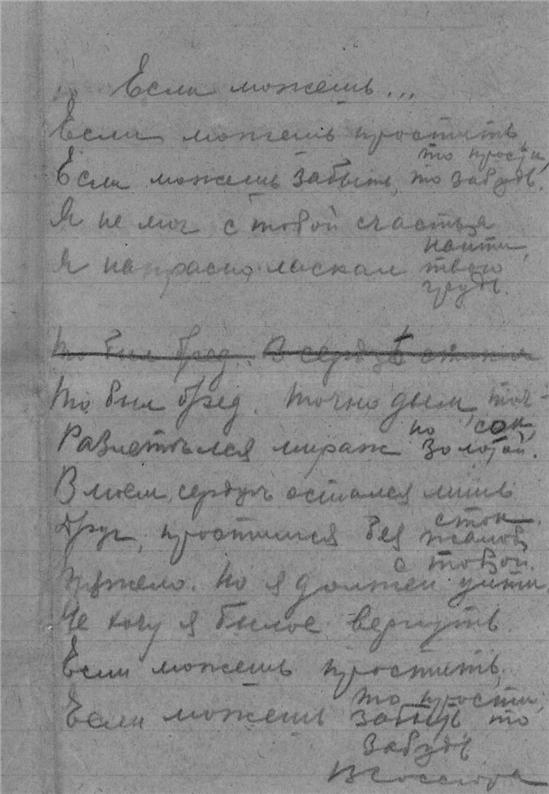 Если можешь...
Если можешь простить,
то прости,
Если можешь забыть, то забудь.
Я не мог с тобой счастья
найти,
Я напрасно ласкал твою
грудь.
То был бред. В сердце
То был бред. Точно дым, точ-
но сон,
Разлетелся мираж золотой.
В моем сердце остался лишь
стон.
Друг, простимся без жалоб
с тобой.
Тяжело. Но я должен уйти,
Не хочу я былое вернуть
Если можешь простить,
то прости,
Если можешь забыть то
забудь